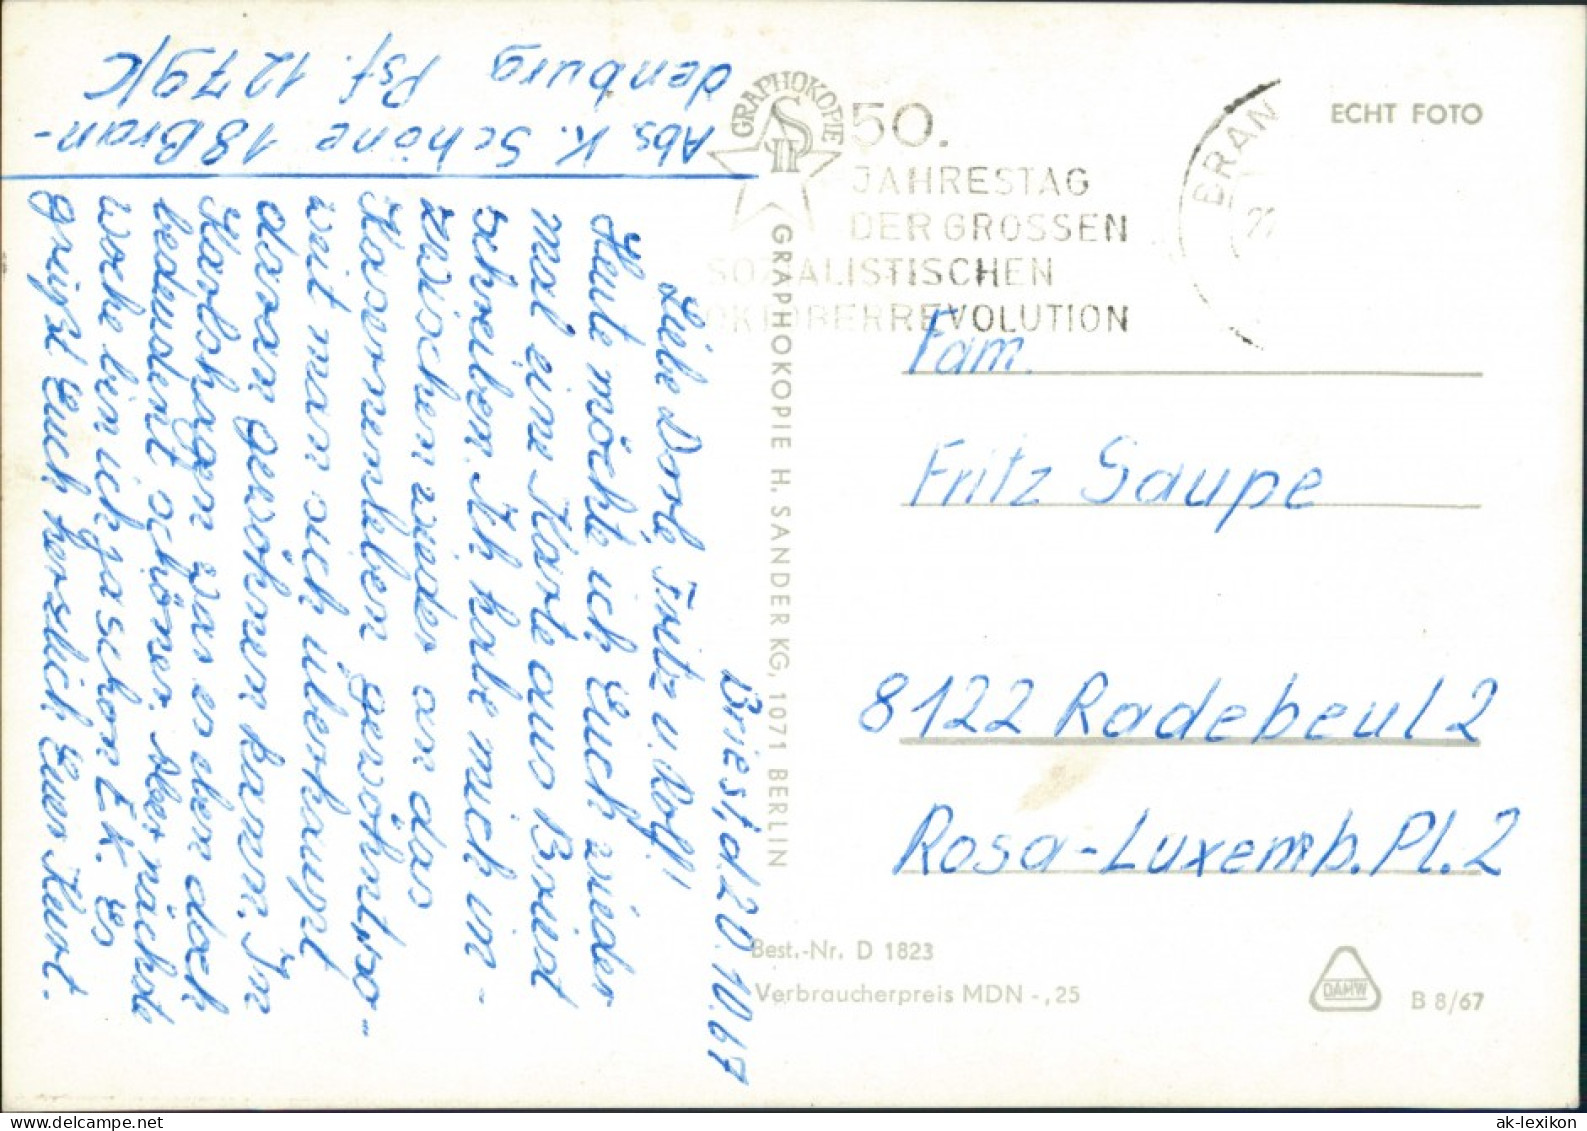 Abs. K. Schöne 18 Bran-
denburg Psf. 1279/C
Briest, d. 20.10.67
Liebe Dorle, Fritz u. Rolf!
Heute möchte ich Euch wieder
mal eine Karte aus Briest
schreiben. Ich habe mich in-
zwischen wieder an das
Kasernenleben gewöhnt, so-
weit man sich überhaupt
daran gewöhnen kann. In
Karlshagen war es eben doch
bedeutent schöner. Aber nächste
Woche bin ich ja schon E.K. Es
grüßt Euch herzlich Euer Kurt.
GRAPHOKOPIE
GRAPHOKOPIE H. SANDER KG, 1071 BERLIN
50.
JAHRESTAG
DER GROSSEN
SOZIALISTISCHEN
OKTOBERREVOLUTION
BRAN
ECHT FOTO
Fam.
Fritz Saupe
8122 Radebeul 2
Rosa-Luxemb.Pl.2
Best.-Nr. D 1823
Verbraucherpreis MDN -,25
DAHW
B 8/67
ak-lexikon